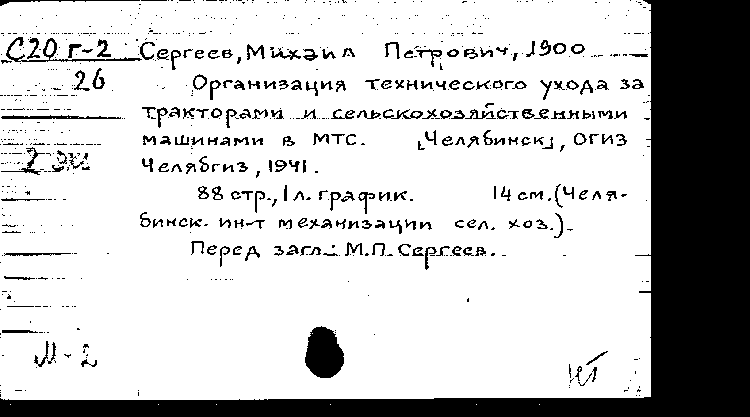 С20 г-2 Сергеев, Михаил Петрович, 1900
26 Организация технического ухода за
тракторами и сельскохозяйственными
машинами в МТС. [Челябинск], ОГИЗ
2 экз
Челябгиз, 1941.
88 стр., 1 л. график. 14 см. (Челя-
бинск. ин-т механизации сел. хоз.).
Перед загл.: М.П. Сергеев.
М-2